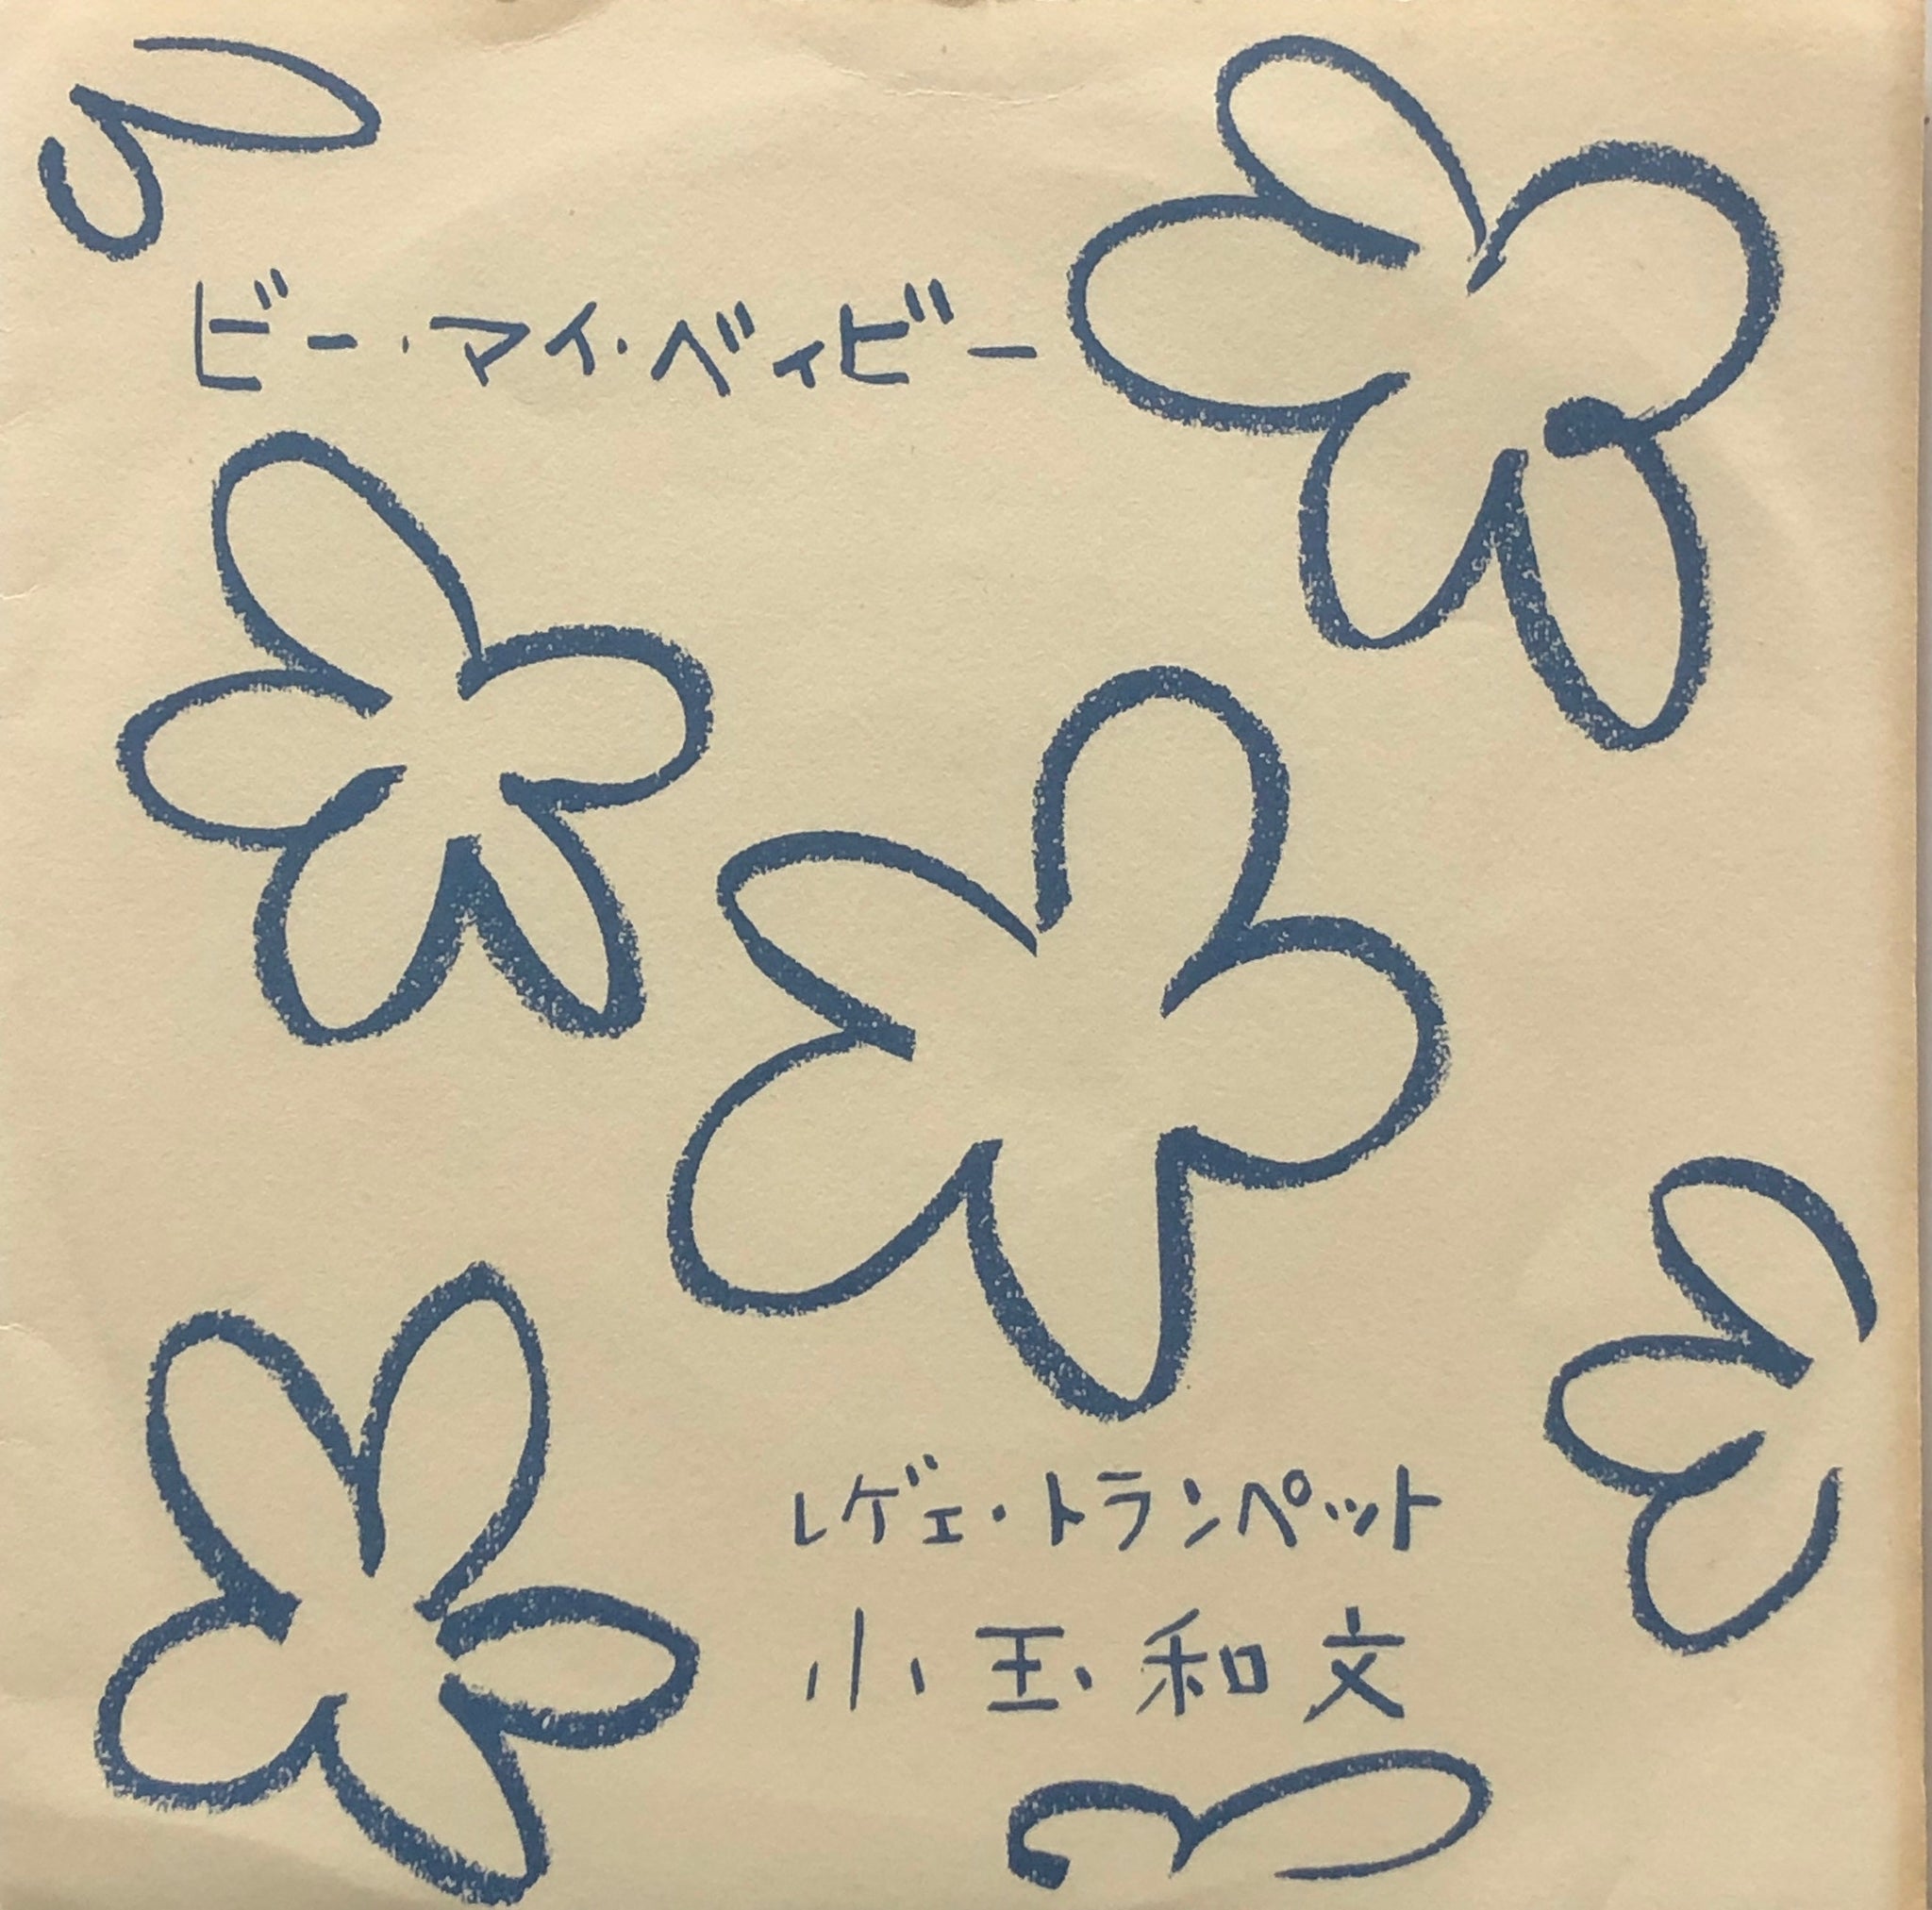 ビー・マイ・ベィビー
レゲェ・トランペット
小玉和文